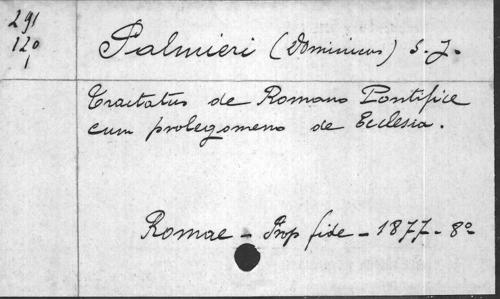 291
120
1
Palmieri (Dominicus) S. J.
Tractatus de Romano Pontifice
cum prolegomeno de Ecclesia.
Romae - Prop fide - 1877 - 8º